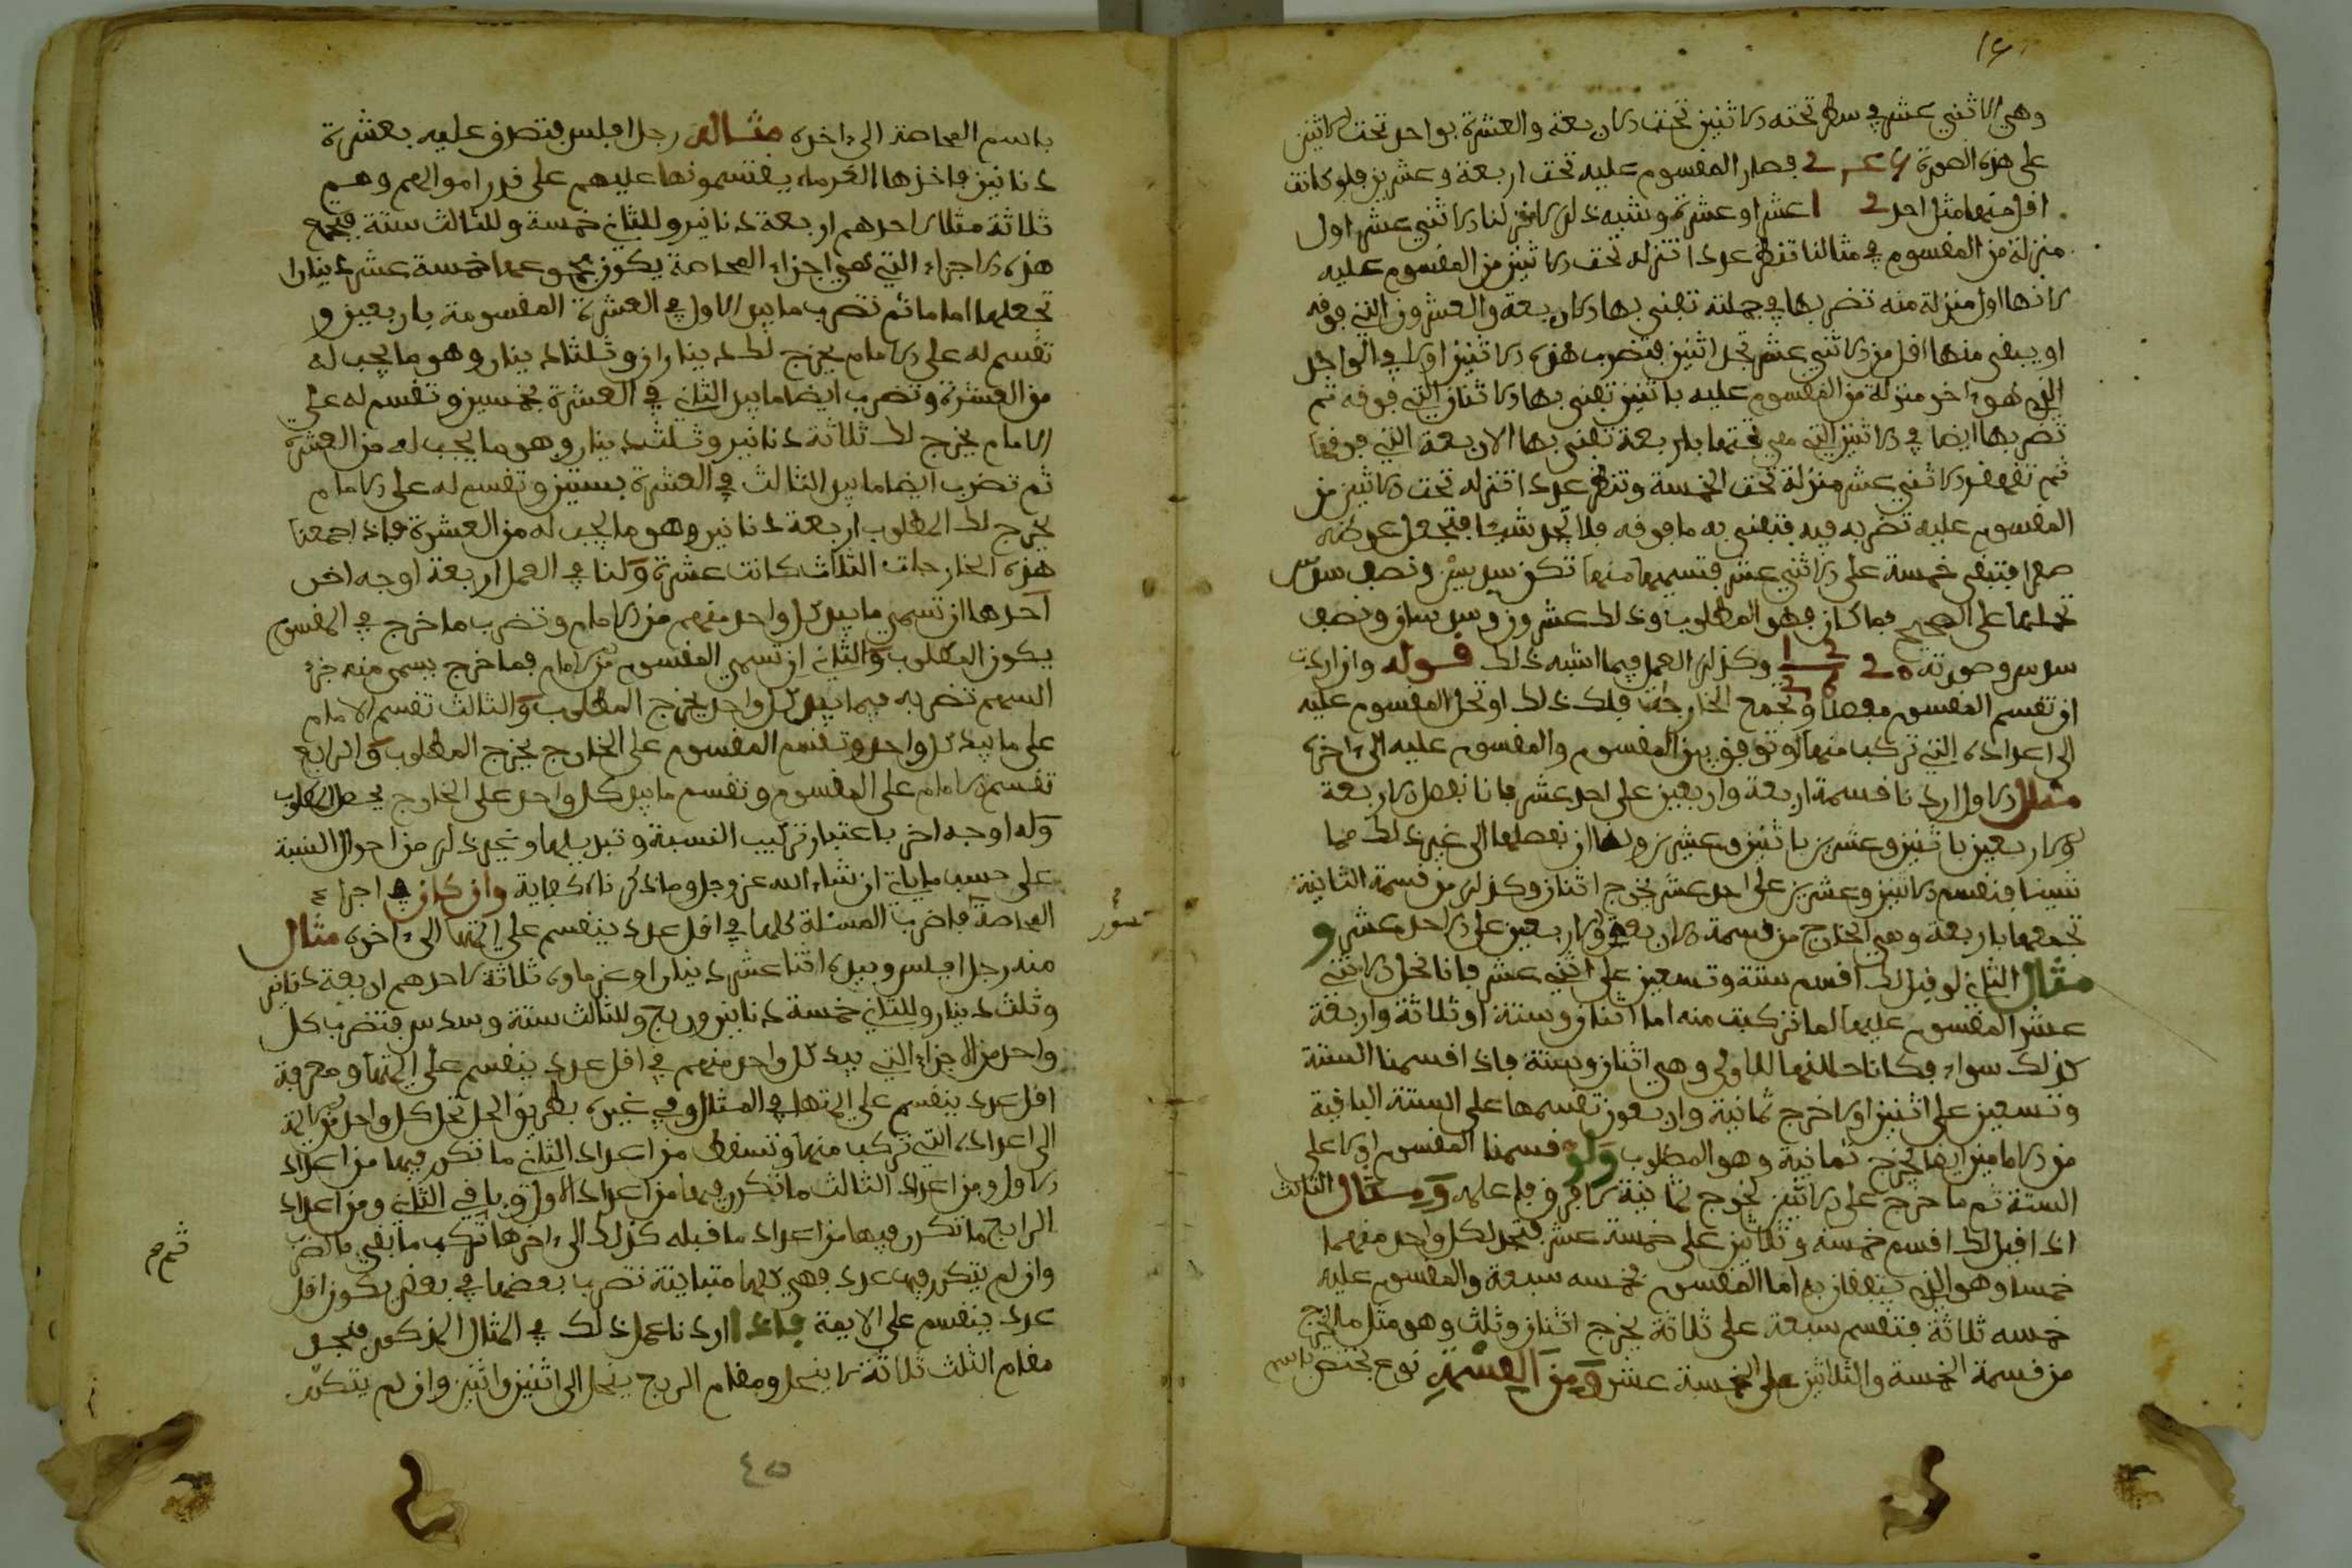 وهي الاثني عشر في سطر تحته الاثنين تحت الاربعة والعشرة بواحد تحت الاثنين
على هذه الصورة فصار المقسوم عليه تحت اربعة وعشرين فلو كانت
اقل منها مثل احد عشر او عشرة وشبه ذلك لنا الاثني عشر اول
منزلة من المقسوم في مثالنا تنظر عددا تنزله تحت الاثنين من المقسوم عليه
لانها اول منزلة منه تضربها في جملته تفني بها الاربعة والعشرون التي فوقه
او يبقى منها اقل من الاثني عشر تجد اثنين فتضرب هذه الاثنين اولا في الواحد
الذي هو ءاخر منزلة من المقسوم عليه باثنين تفني بها الاثنان التي فوقه ثم
تضربها ايضا في الاثنين التي تحتها باربعة تفني بها الاربعة التي فوقها
ثم تقهقر الاثني عشر منزلة تحت الخمسة وتنظر عددا تنزله تحت الاثنين من
المقسوم عليه تضربه فيه فتفني به ما فوقه فلا تجد شيئا فتجعل عوضه
صفرا فتبقى خمسة على الاثني عشر فتسميها منها تكن سدسين ونصف سدس
تحملها على الصحيح فما كان فهو المطلوب وذلك عشرون وسدسان ونصف
سدس وصورته وكذلك العمل فيما اشبه ذلك قوله وان اردت
ان تقسم المقسوم مفصلا وتجمع الخارجات فلك ذلك او تحل المقسوم عليه
الى اعداده التي تركب منها او توفق بين المقسوم والمقسوم عليه الى ءاخره
مثال الاول اردنا قسمة اربعة واربعين على احد عشر فانا نفصل الاربعة
والاربعين باثنين وعشرين باثنين وعشرين ولنا ان نفصلها الى غير ذلك مما
شينا فنقسم الاثنين وعشرين على احد عشر يخرج اثنان وكذلك من قسمة الثانية
تجمعها باربعة وهي الخارج من قسمة الاربعة والاربعين على الاحد عشر و
مثال الثاني لو قيل لك اقسم ستة وتسعين على اثني عشر فانا نحل الاثني
عشر المقسوم عليها لما تركبت منه اما اثنان وستة او ثلاثة واربعة
كذلك سواء فكانا حللنها للاولى وهي اثنان وستة فاذا قسمنا الستة
وتسعين على اثنين اولا خرج ثمانية واربعون تقسمها على الستة الباقية
من الامامين ايضا يخرج ثمانية وهو المطلوب ولو قسمنا المقسوم اولا على
الستة ثم ما خرج على الاثنين لخرج ثمانية لا فرق فاعلمه ومثال الثالث
اذا قيل لك اقسم خمسة وثلاثين على خمسة عشر فتجد لكل واحد منهما
خمسا وهو الذي يتفقان به اما المقسوم فخمسه سبعة والمقسوم عليه
خمسه ثلاثة فتقسم سبعة على ثلاثة يخرج اثنان وثلث وهو مثل ما يخرج
من قسمة الخمسة والثلاثين على الخمسة عشر ومن القسمة نوع يختص باسم
باسم المحاصة الى ءاخره مثاله رجل افلس فتصدق عليه بعشرة
دنانير فاخذها الغرماء يقتسمونها عليهم على قدر اموالهم وهم
ثلاثة مثلا لاحدهم اربعة دنانير وللثاني خمسة وللثالث ستة فتجمع
هذه الاجزاء التي هي اجزاء المحاصة يكون مجموعها خمسة عشر دينارا
تجعلها اماما ثم تضرب ما بيد الاول في العشرة المقسومة باربعين و
تقسم له على الامام يخرج لك ديناران وثلثا دينار وهو ما يجب له
من العشرة وتضرب ايضا ما بيد الثاني في العشرة بخمسين وتقسم له على
الامام يخرج لك ثلاثة دنانير وثلث دينار وهو ما يجب له من العشرة
ثم تضرب ايضا ما بيد الثالث في العشرة بستين وتقسم له على الامام
يخرج لك المطلوب اربعة دنانير وهو ما يجب له من العشرة فاذا جمعنا
هذه الخارجات الثلاث كانت عشرة ولنا في العمل اربعة اوجه اخر
احدها ان تسمي ما بيد كل واحد منهم من الامام وتضرب ما خرج في المقسوم
يكون المطلوب والثاني ان تسمي المقسوم من الامام فما خرج يسمى منه جزء
السهم تضربه فيما بيد كل واحد يخرج المطلوب والثالث تقسم الامام
على ما بيد كل واحد وتقسم المقسوم على الخارج يخرج المطلوب والرابع
تقسم الامام على المقسوم وتقسم ما بيد كل واحد على الخارج يحصل المطلوب
وله اوجه اخر باعتبار تركيب النسبة وتبديلها وغير ذلك من احوال النسبة
على حسب ما ياتي ان شاء الله عز وجل وما ذكرناه كفاية وان كان في اجزاء
المحاصة فاضرب المسئلة كلها في اقل عدد ينقسم على ايمتها الى ءاخره مثال
منه رجل افلس وبيده اثنا عشر دينارا وغرماؤه ثلاثة لاحدهم اربعة دنانير
وثلث دينار وللثاني خمسة دنانير وربع وللثالث ستة وسدس فتضرب كل
واحد من الاجزاء التي بيد كل واحد منهم في اقل عدد ينقسم على ايمتها ومعرفة
اقل عدد ينقسم على ايمتها في المثال وفي غيره بطريق الحل تحل كل واحد من الايمة
الى اعداده التي تركب منها وتسقط من اعداد الثاني ما تكرر فيها من اعداد
الاول ومن اعداد الثالث ما تكرر فيها من اعداد الاول وباقي الثاني ومن اعداد
الرابع ما تكرر فيها من اعداد ما قبله كذلك الى ءاخرها تركب ما بقي بالضرب
وان لم يتكرر فيها عدد فهي كلها متباينة تضرب بعضها في بعض يكون اقل
عدد ينقسم على الايمة فاذا اردنا عمل ذلك في المثال المذكور فتجد
مقام الثلث ثلاثة لا ينحل ومقام الربع ينحل الى اثنين واثنين وان لم يتكرر
٤٥